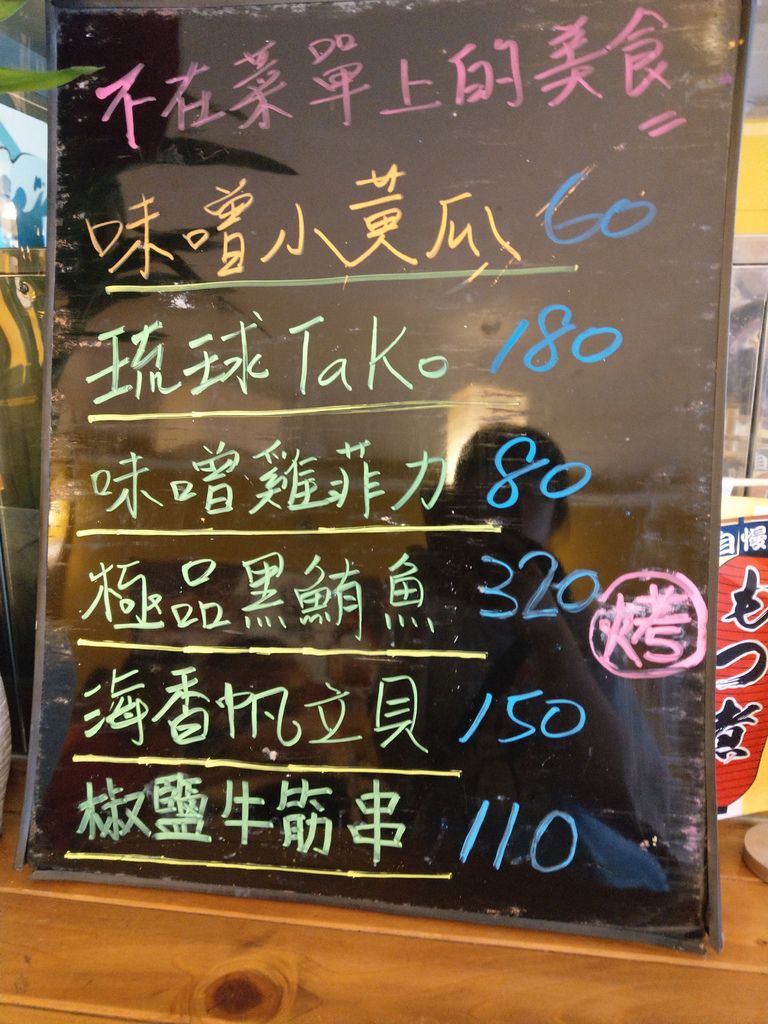 不在菜單上的美食
味噌小黃瓜 60
琉球Tako 180
味噌雞菲力 80
極品黑鮪魚 320 烤
海香帆立貝 150
椒鹽牛筋串 110
自慢
もつ煮